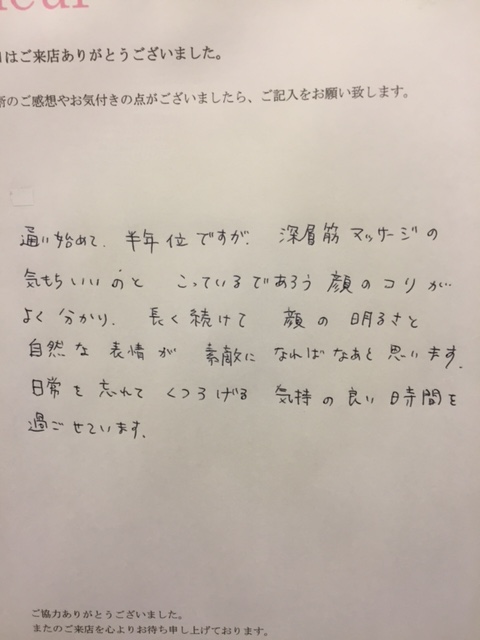 はご来店ありがとうございました。
のご感想やお気付きの点がございましたら、ご記入をお願い致します。
通い始めて、半年位ですが、深層筋マッサージの
気もちいいのと こっているであろう顔のコリが
よく分かり、長く続けて 顔の明るさと
自然な表情が 素敵に なればなあと思います。
日常を忘れて くつろげる 気持の良い時間を
過ごせています。
ご協力ありがとうございました。
またのご来店を心よりお待ち申し上げております。